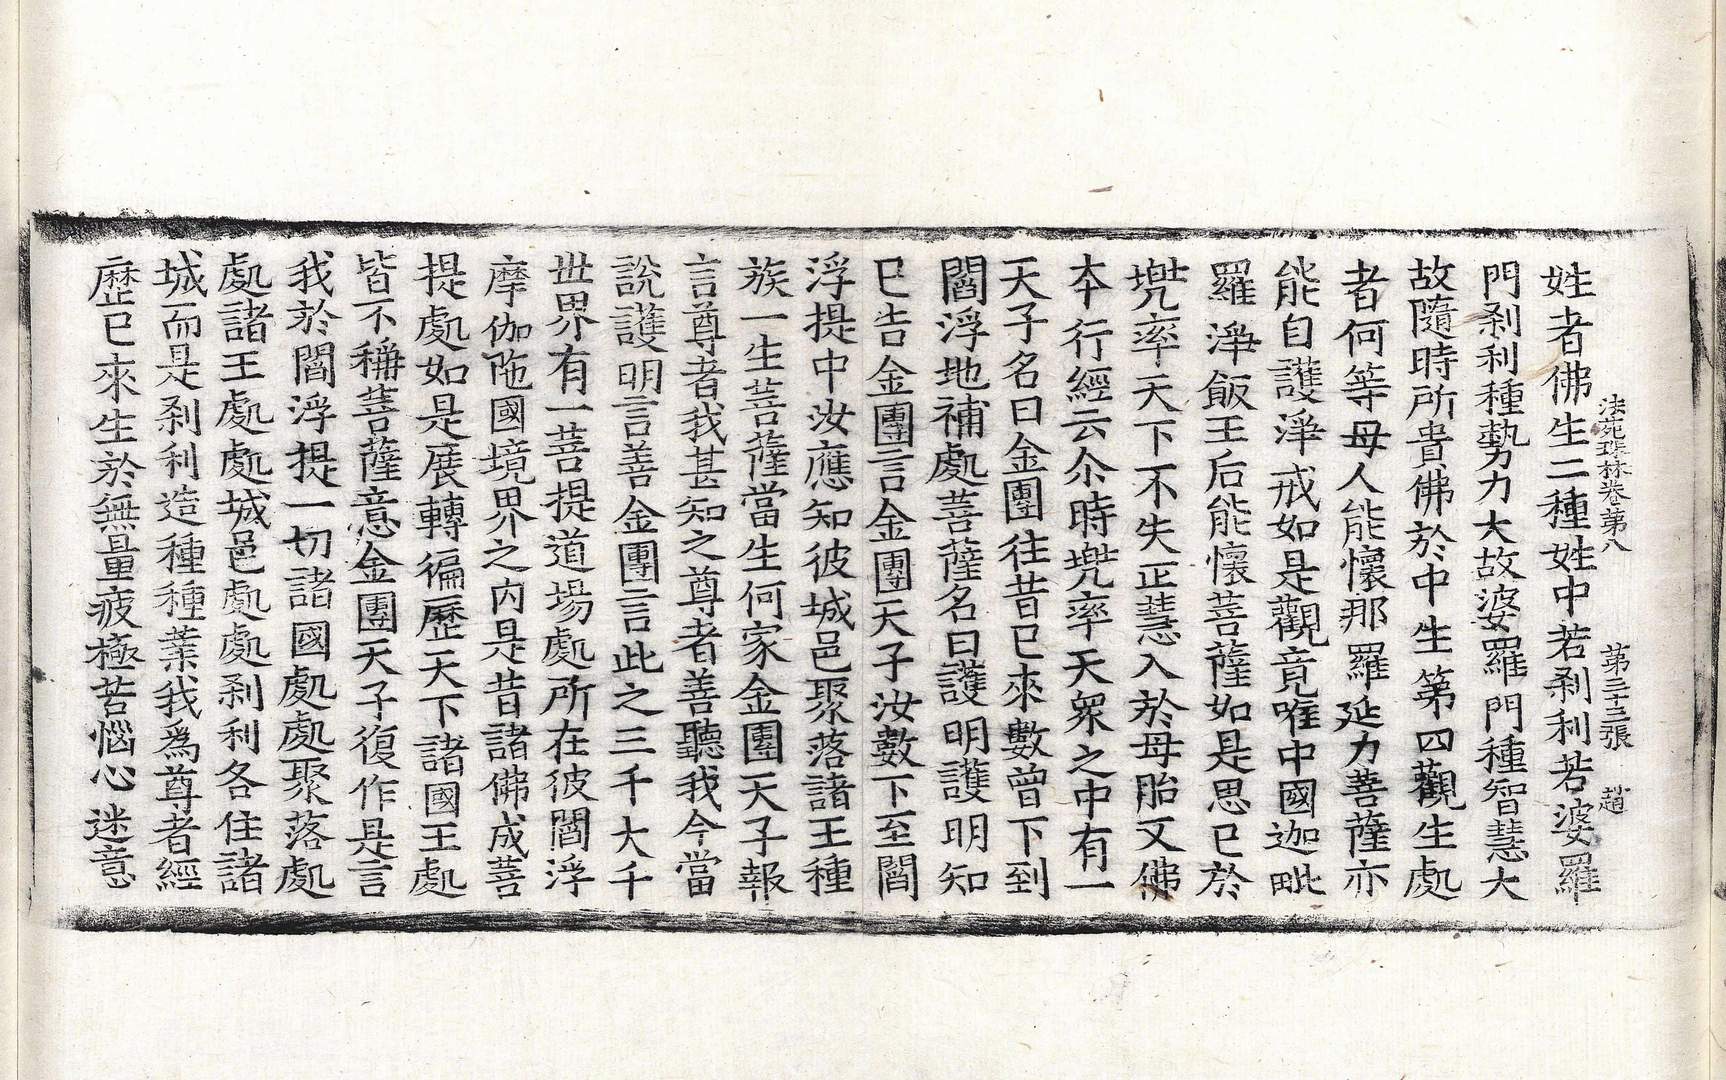 法苑珠林卷第八 第三十三張 趙
姓者佛生二種姓中若刹利若婆羅
門刹利種勢力大故婆羅門種智慧大
故隨時所貴佛於中生第四觀生處
者何等母人能懷那羅延力菩薩亦
能自護淨戒如是觀竟唯中國迦毗
羅淨飯王后能懷菩薩如是思已於
兠率天下不失正慧入於母胎又佛
本行經云尒時兠率天衆之中有一
天子名曰金團往昔已來數曾下到
閻浮地補處菩薩名曰護明護明知
已告金團言金團天子汝數下至閻
浮提中汝應知彼城邑聚落諸王種
族一生菩薩當生何家金團天子報
言尊者我甚知之尊者善聽我今當
說護明言善金團言此之三千大千
世界有一菩提道場處所在彼閻浮
摩伽陁國境界之内是昔諸佛成菩
提處如是展轉徧歷天下諸國王處
皆不稱菩薩意金團天子復作是言
我於閻浮提一切諸國處處聚落處
處諸王處處城邑處處刹利各住諸
城而是刹利造種種業我爲尊者經
歷已來生於無量疲極苦惱心迷意